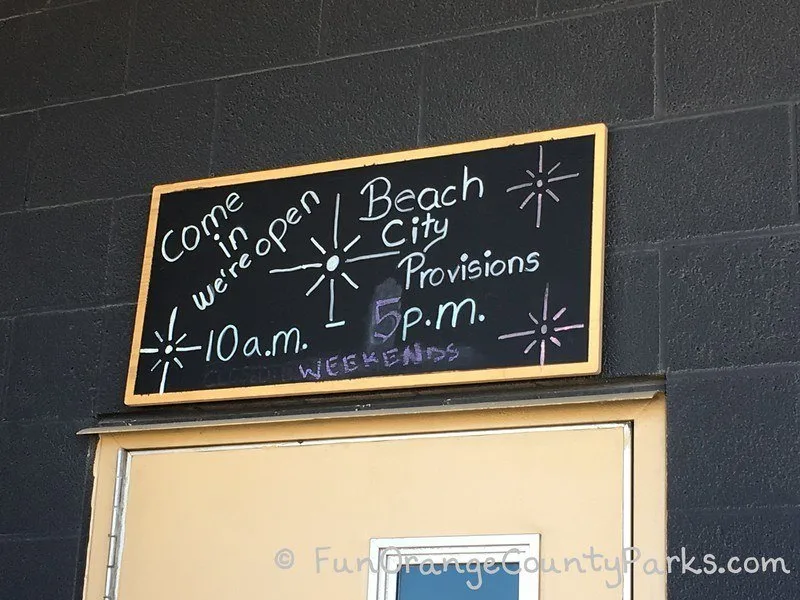 Come
in
we're open
Beach
City
Provisions
10 a.m. – 5 p.m.
WEEKENDS
© FunOrangeCountyParks.com